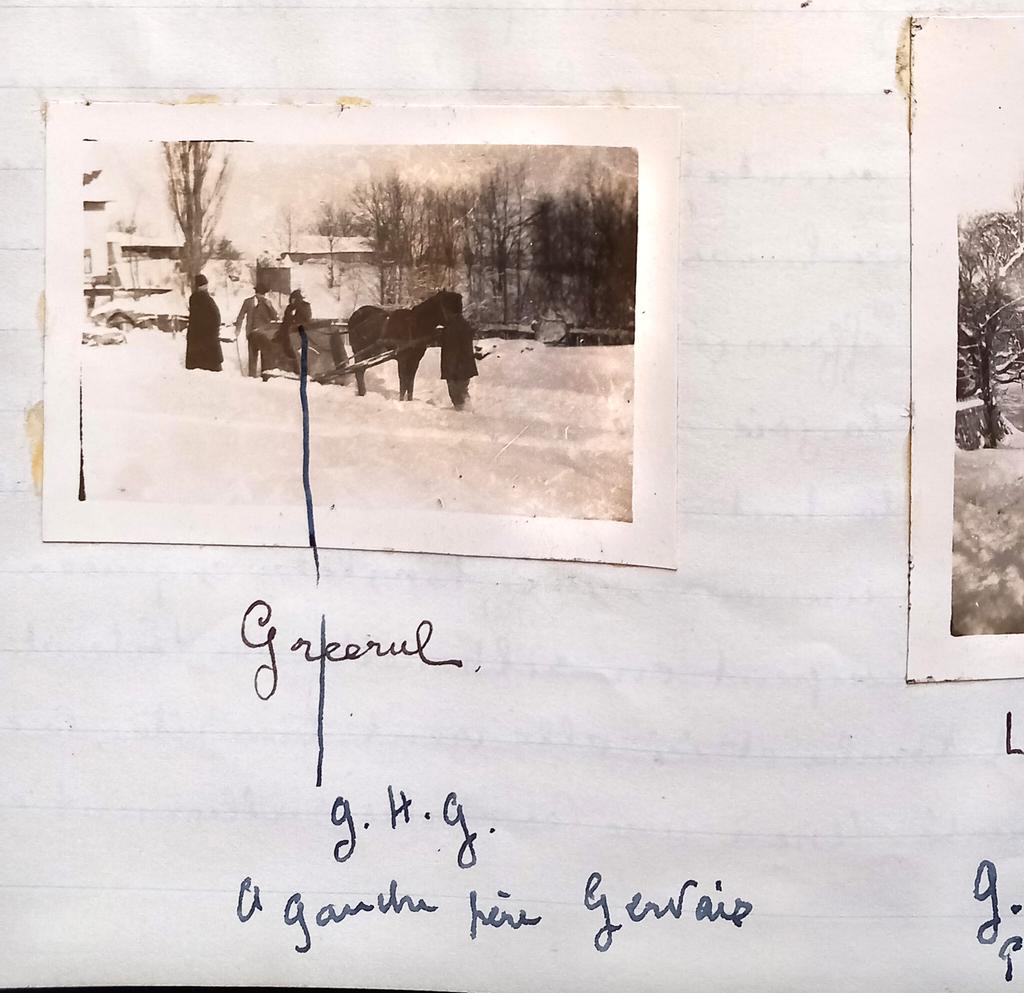 Greerul.
g. H. g.
A gauche père Gervais
L
g.
P